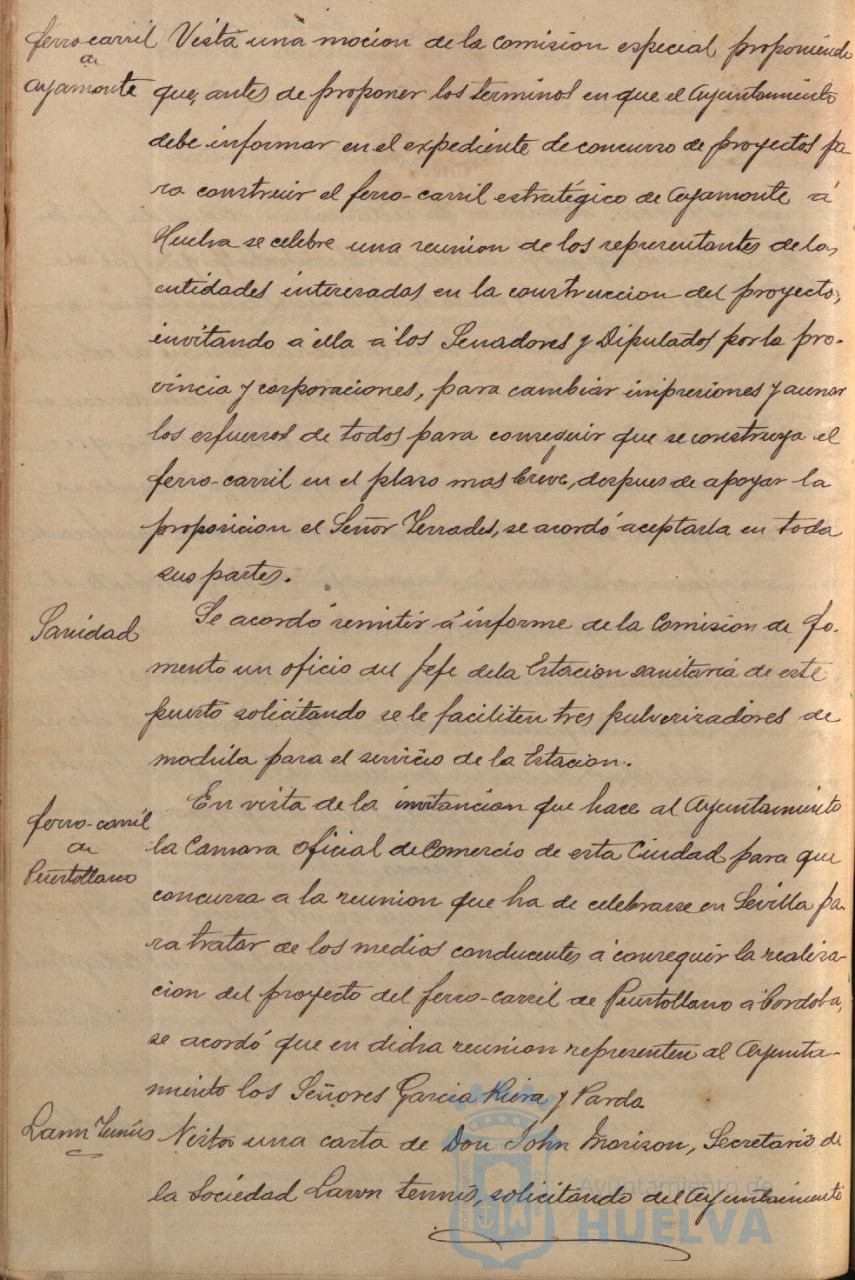 ferro-carril
a
Ayamonte
Vista una mocion de la Comision especial proponiendo
que, antes de proponer los terminos en que el Ayuntamiento
debe informar en el expediente de concurso de proyectos pa
ra construir el ferro-carril estratégico de Ayamonte á
Huelva se celebre una reunion de los representantes de las
entidades interesadas en la construccion del proyecto,
invitando a ella á los Senadores y Diputados por la pro-
vincia y corporaciones, para cambiar impresiones y aunar
los esfuerzos de todos para conseguir que se construya el
ferro-carril en el plazo mas breve, despues de apoyar la
proposicion el Señor Terrades, se acordó aceptarla en toda
sus partes.
Sanidad
Se acordó remitir á informe de la Comision de Fo-
mento un oficio del Jefe de la Estacion sanitaria de este
puerto solicitando se le faciliten tres pulverizadores de
mochila para el servicio de la Estacion.
ferro-carril
de
Puertollano
En vista de la invitancion que hace al Ayuntamiento
la Camara oficial de Comercio de esta Ciudad para que
concurra a la reunion que ha de celebrarse en Sevilla pa-
ra tratar de los medios conducentes á conseguir la realiza-
cion del proyecto del ferro-carril de Puertollano á Cordoba,
se acordó que en dicha reunion representen al Ayunta-
miento los Señores Garcia Riera y Parda
Lawn Tennis
Vista una carta de Don John Morison, Secretario de
la Sociedad Lawn tennis, solicitando del Ayuntamiento
Ayuntamiento de
HUELVA